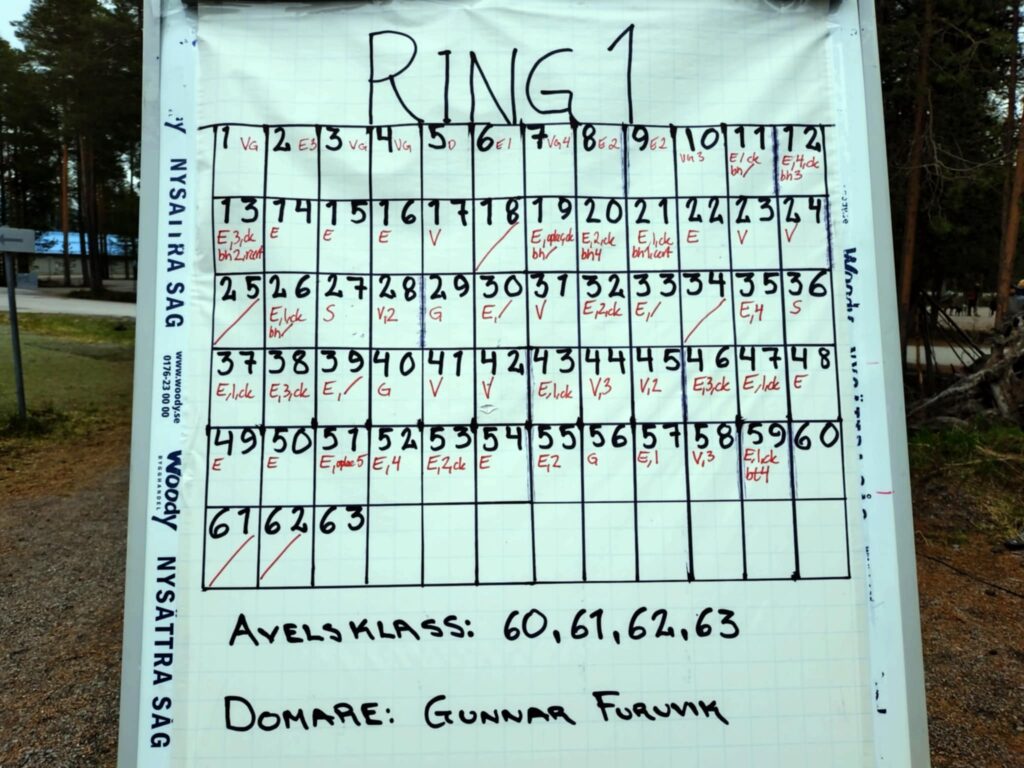 RING 1
1 VG 2 E3 3 VG 4 VG 5 D 6 E1 7 VG4 8 E2 9 E2 10 VG3 11 E1ck bh/ 12 E,4,ck bh3
13 E,3,ck bh2,rcert 14 E 15 E 16 E 17 V 18 / 19 E, bh/ 20 E,2,ck bh4 21 E,1,ck bh1,cert 22 E 23 V 24 V
25 / 26 E,1,ck bh/ 27 S 28 V,2 29 G 30 E,/ 31 V 32 E,2,ck 33 E,/ 34 / 35 E,4 36 S
37 E,1,ck 38 E,3,ck 39 E,/ 40 G 41 V 42 V 43 E,1,ck 44 V,3 45 V,2 46 E,3,ck 47 E,1,ck 48 E
49 E 50 E 51 E,oplac5 52 E,4 53 E,2,ck 54 E 55 E,2 56 G 57 E,1 58 V,3 59 E,1,ck bt4 60
61 / 62 / 63
AVELSKLASS: 60, 61, 62, 63
DOMARE: GUNNAR FURUVIK
NYSÄTTRA SÅG
www.woody.se
0176-23 00 00
Woody
BYGGHANDEL
NYSÄTTRA SÅG